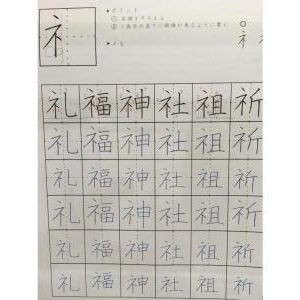 礻
▶ポイント
① 右側をそろえる
▶メモ
礼 福 神 社 祖 祈
礼 福 神 社 祖 祈
礼 福 神 社 祖 祈
礼 福 神 社 祖 祈
礼 福 神 社 祖 祈
礼 福 神 社 祖 祈